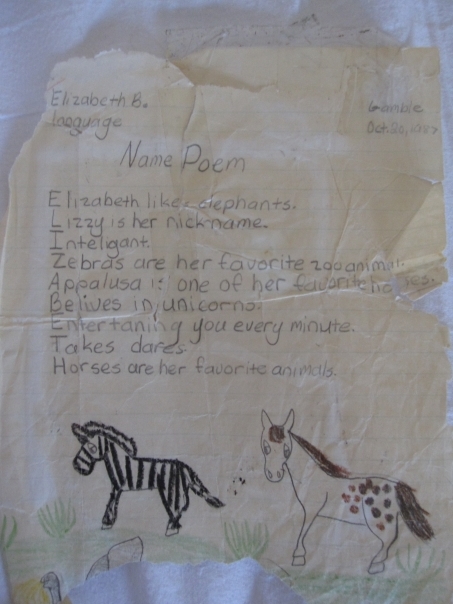 Elizabeth B.
language
Gamble
Oct. 20, 1987
Name Poem
Elizabeth likes elephants.
Lizzy is her nickname.
Inteligant.
Zebras are her favorite zoo animal.
Appalusa is one of her favorite horses.
Belives in unicorns.
Entertaning you every minute.
Takes dares.
Horses are her favorite animals.